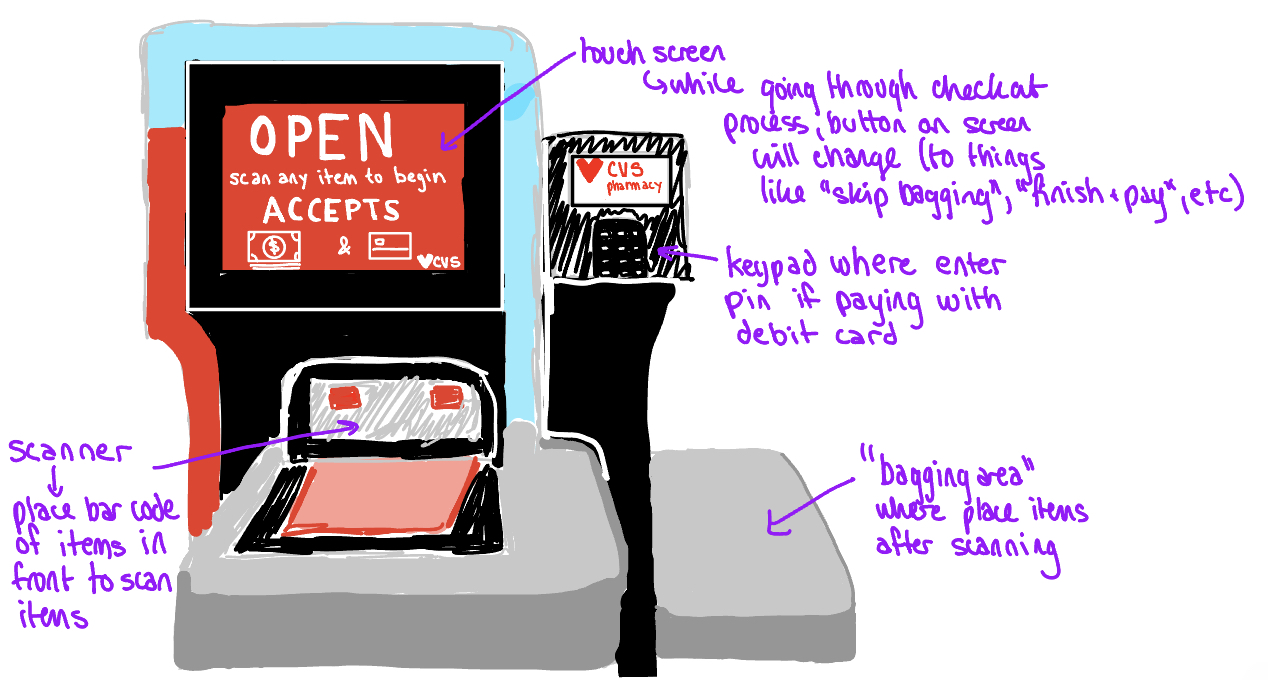 OPEN
scan any item to begin
ACCEPTS
$ &
CVS
CVS
pharmacy
touch screen
while going through checkout
process, button on screen
will change (to things
like "skip bagging", "finish + pay", etc)
keypad where enter
pin if paying with
debit card
scanner
place bar code
of items in
front to scan
items
"bagging area"
where place items
after scanning